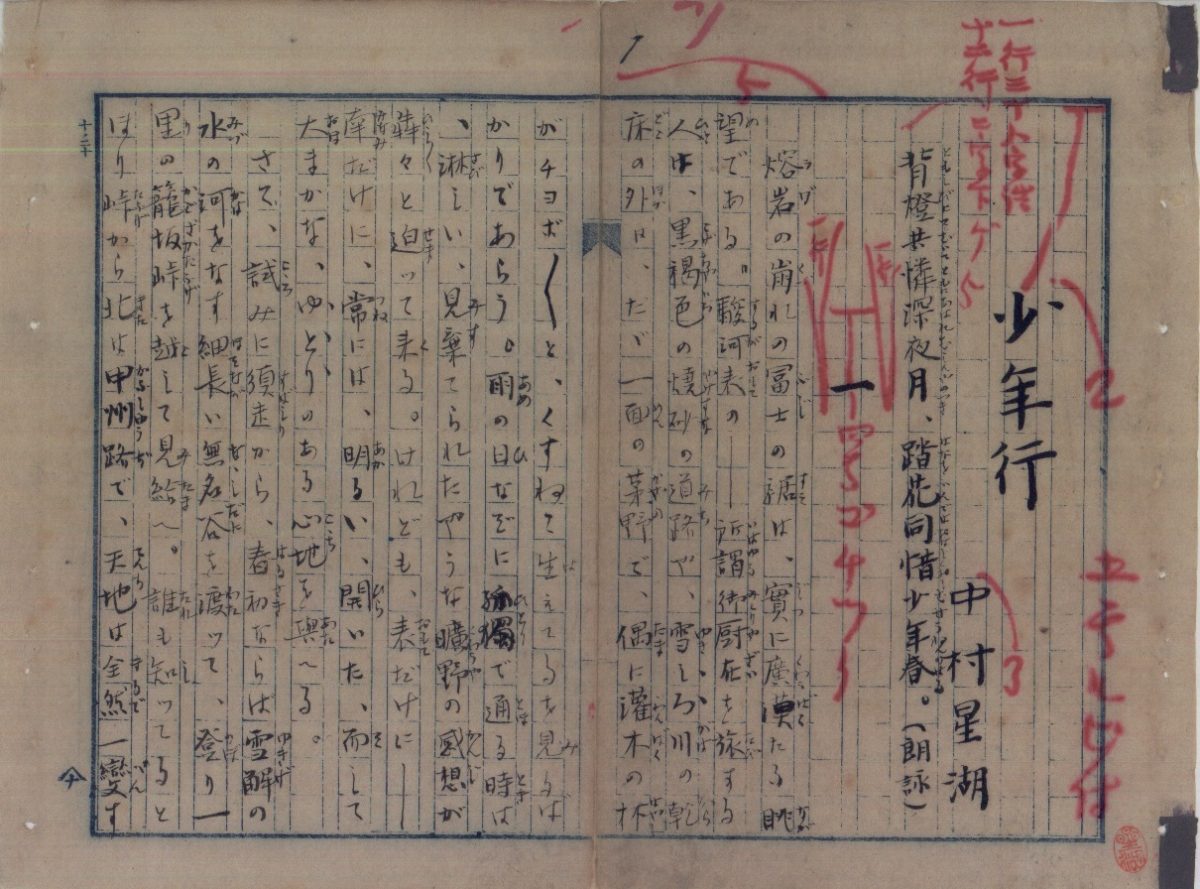 少年行
中村星湖
背燈共憐深夜月、踏花同惜少年春。(朗詠)
一
熔岩の崩れの富士の裾は、實に廣漠たる眺
望である。駿河表の――所謂御厨在を旅する
人は、黒褐色の燒砂の道路や、雪しろ川の乾
床の外は、たゞ一面の茅野で、偶に灌木の林
がチヨボ〱と、くすねて生えてるを見るば
かりであらう。雨の日などに孤獨で通る時は
、淋しい、見棄てられたやうな曠野の感想が
犇々と迫って来る。けれども、表だけに――
南だけに、常には、明るい、開いた、而して
大まかな、ゆとりのある心地を與へる。
さて、試みに須走から、春初ならば雪解の
水の河をなす細長い無名谷を渡ッて、登り一
里の籠坂峠を越して見給へ。誰も知ッてると
ほり峠から北は甲州路で、天地は全然一變す
十二行二字下ゲ
五号
2
3
5